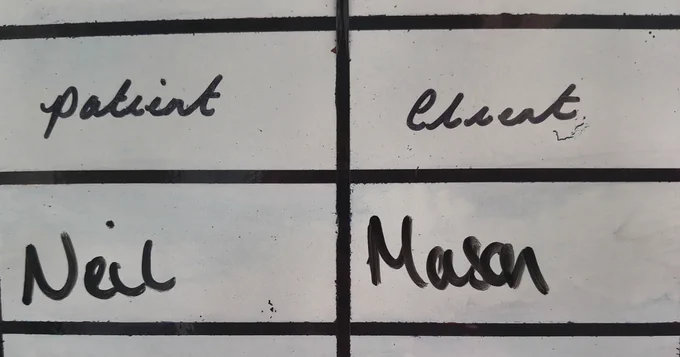 Patient Client
Neil Mason